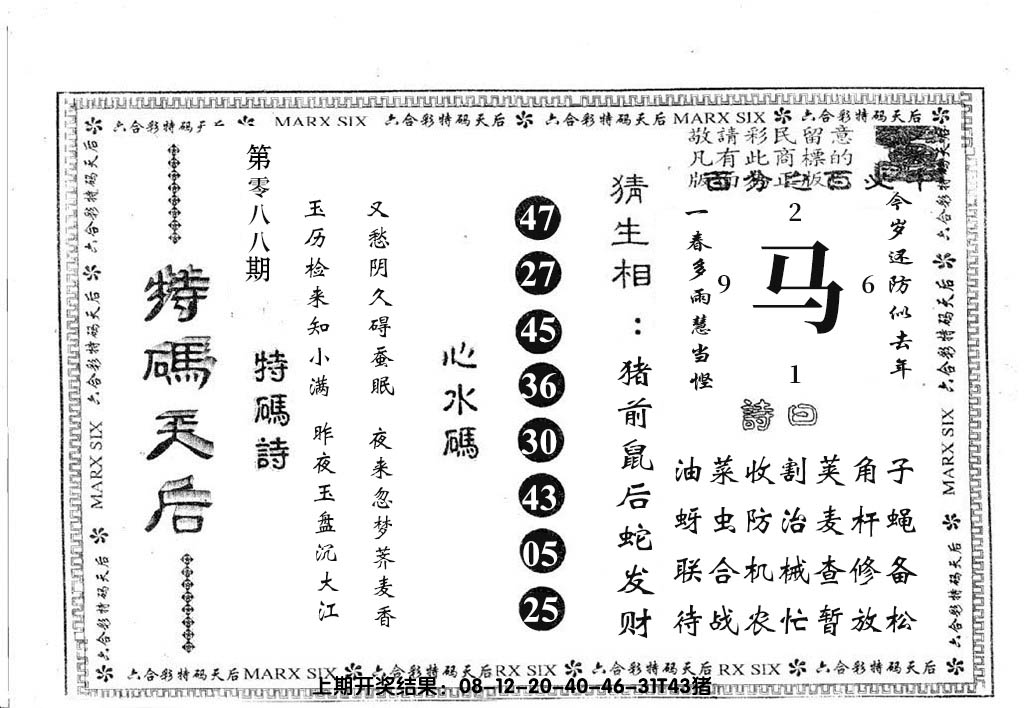 六合彩特码天后 MARX SIX 六合彩特码天后 六合彩特码天后 MARX SIX 六合彩特码天后
敬請彩民留意
凡有此商標的
版面為正版
今岁还防似去年
一春多雨慧当悭
2
9 马 6
1
詩曰
油菜收割荚角子
蚜虫防治麦杆蝇
联合机械查修备
待战农忙暂放松
猜生相：猪前鼠后蛇发财
47
27
45
36
30
43
05
25
心水碼
又愁阴久碍蚕眠 夜来忽梦荞麦香
玉历检来知小满 昨夜玉盘沉大江
特碼詩
第零八八期
特碼天后
六合彩特码天后 MARX SIX 六合彩特码天后
六合彩特码天后 MARX SIX 六合彩特码天后
六合彩特码天后 MARX SIX 六合彩特码天后 RX SIX 六合彩特码天后 RX SIX 六合彩特码天后
上期开奖结果：08-12-20-40-46-31T43猪